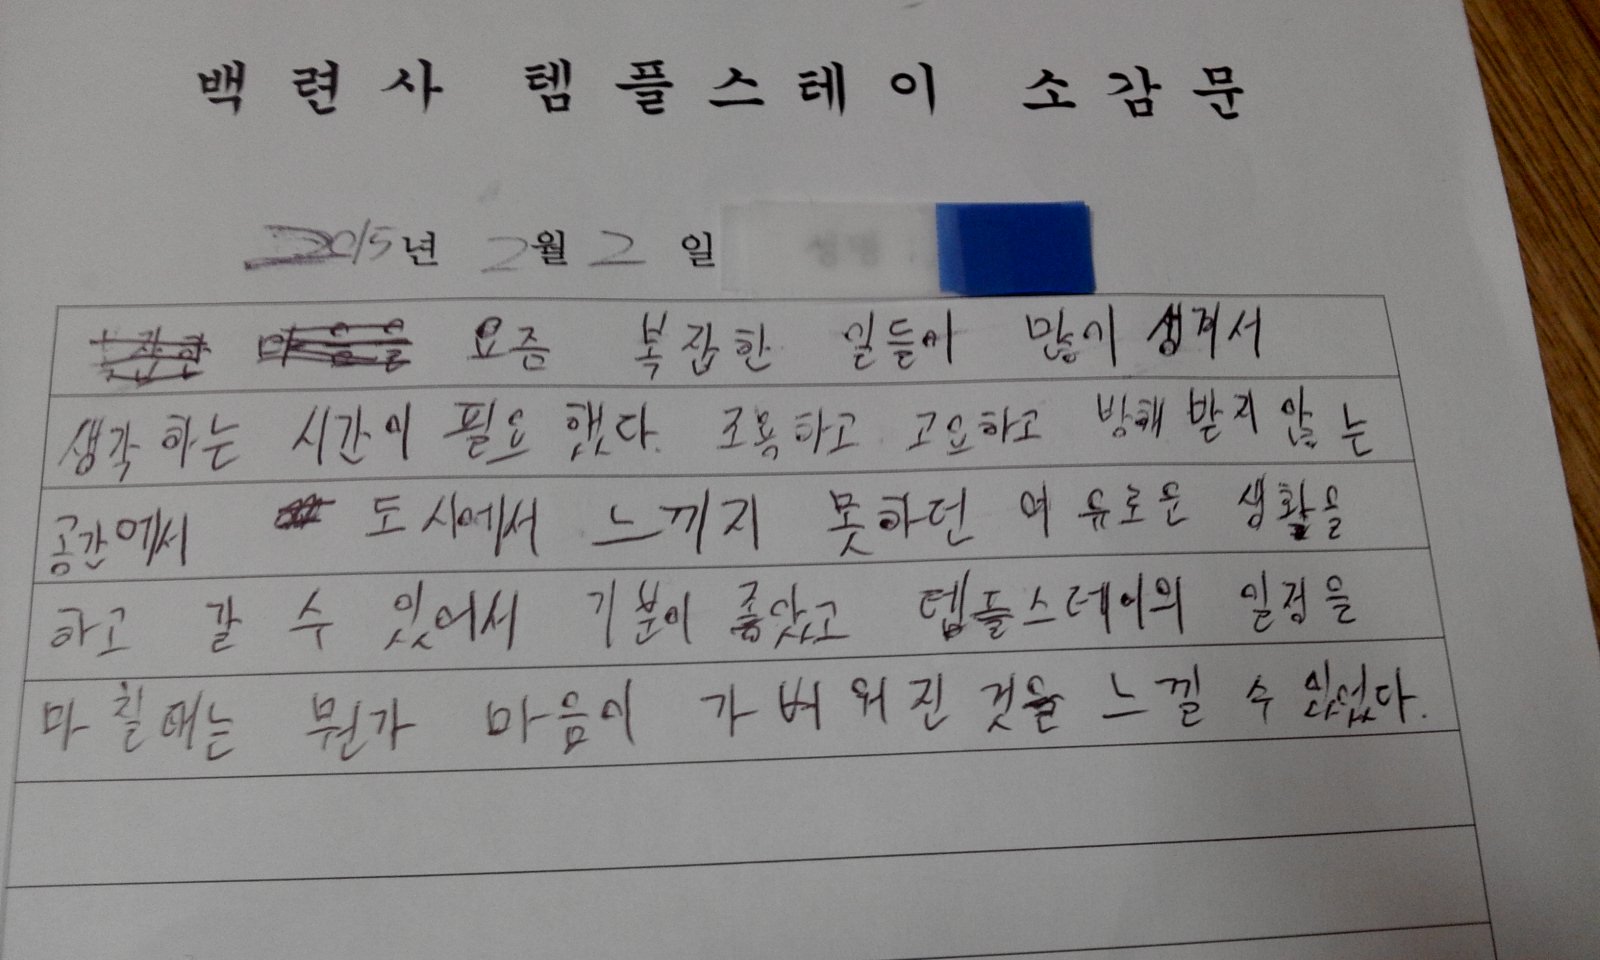 백련사 템플스테이 소감문
2015년 2월 2일
요즘 복잡한 일들이 많이 생겨서
생각하는 시간이 필요했다. 조용하고 고요하고 방해받지 않는
공간에서 도시에서 느끼지 못하던 여유로운 생활을
하고 갈 수 있어서 기분이 좋았고 템플스테이의 일정을
마칠때는 뭔가 마음이 가벼워진 것을 느낄 수 있었다.